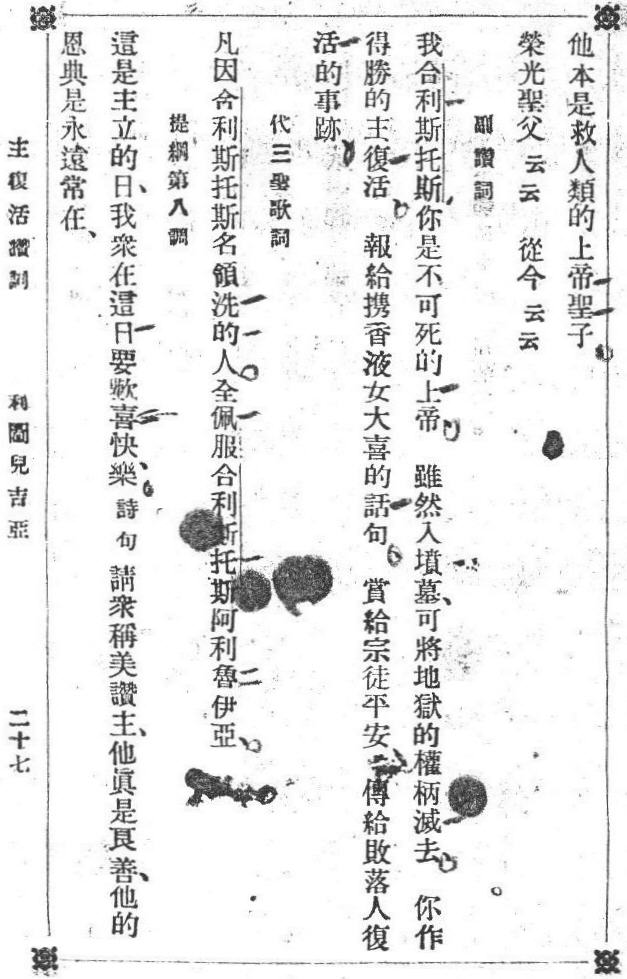 他本是救人類的上帝聖子
榮光聖父 云云 從今 云云
副讚詞
我合利斯托斯、你是不可死的上帝 雖然入墳墓、可將地獄的權柄滅去、 你作
得勝的主復活 報給携香液女大喜的話句 賞給宗徒平安 傳給敗落人復
活的事跡、
代三聖歌詞
凡因合利斯托斯名領洗的人全佩服合利斯托斯阿利魯伊亞、
提綱第八調
這是主立的日、我衆在這日要歡喜快樂、 詩句 請衆稱美讚主、他眞是良善、他的
恩典是永遠常在、
主復活讚詞 利圖兒吉亞 二十七